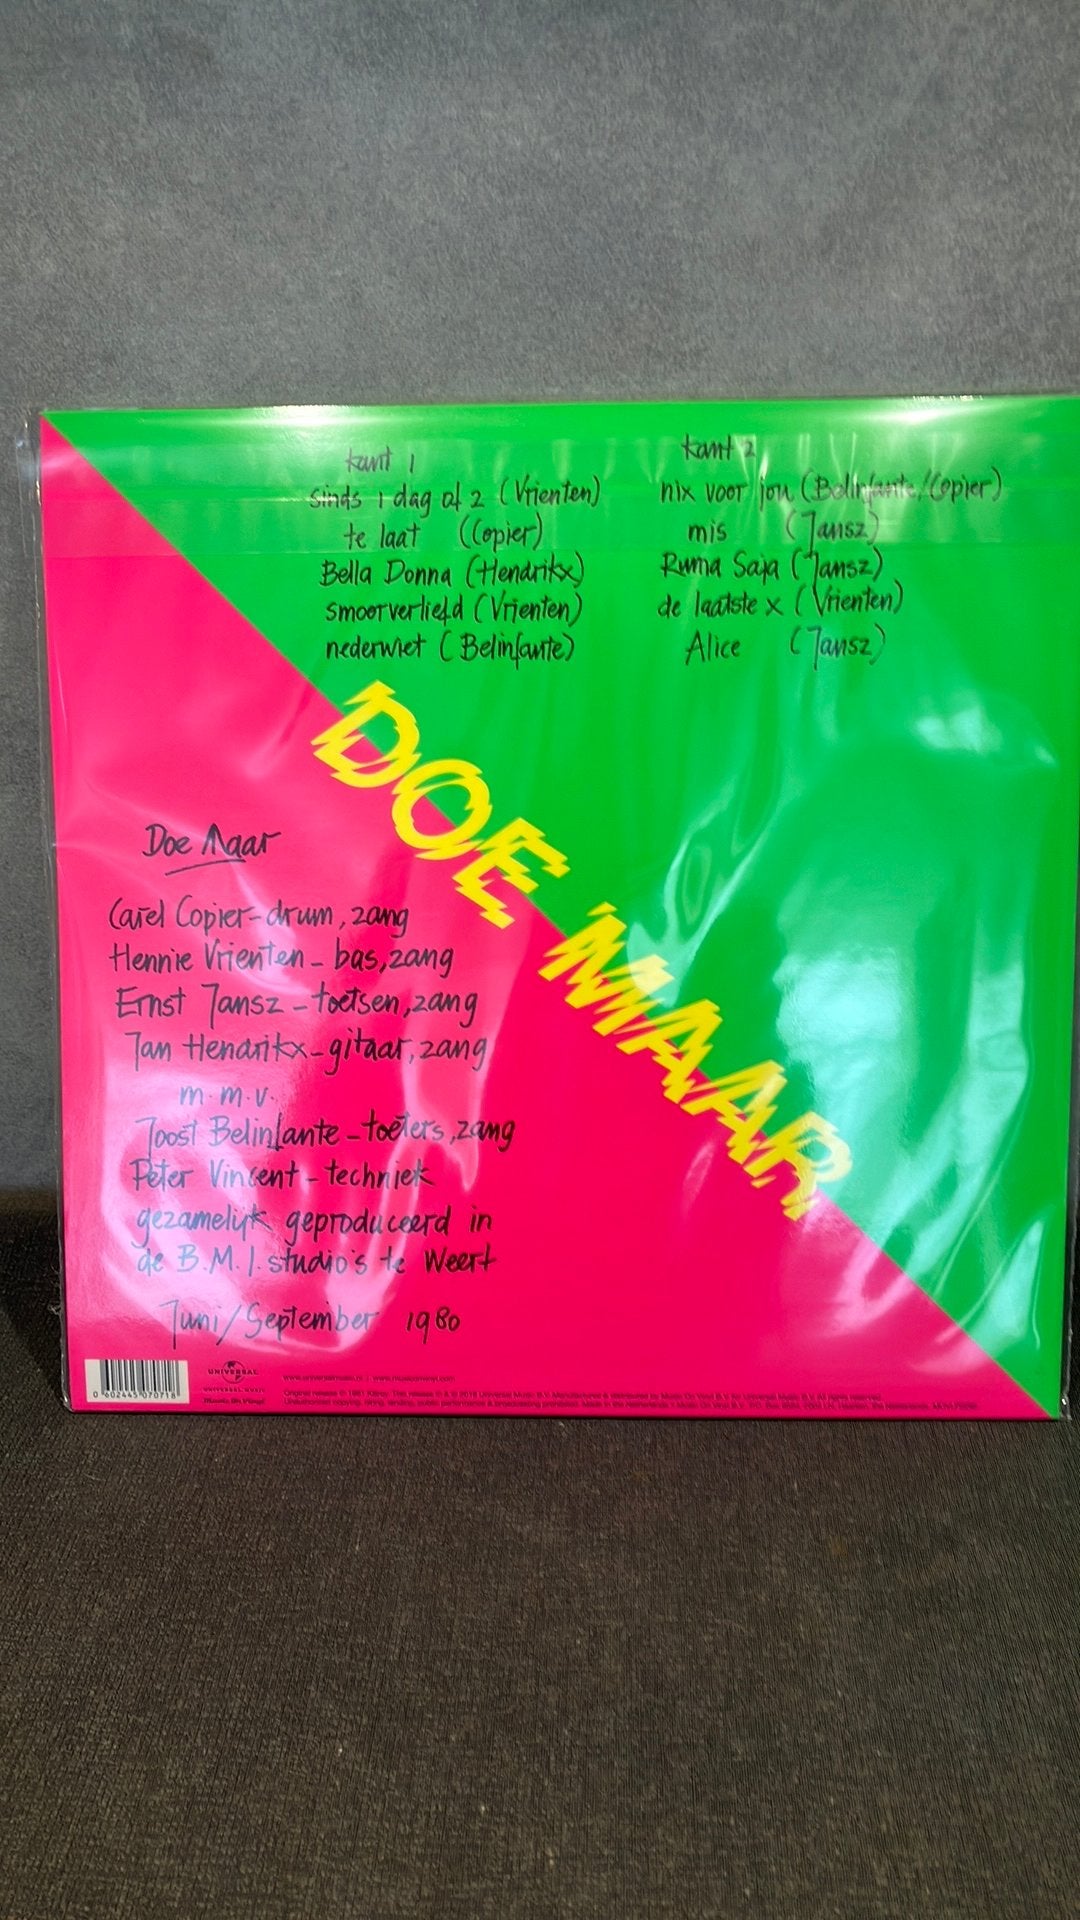 kant 1
sinds 1 dag of 2 (Vrienten)
te laat (Copier)
Bella Donna (Hendrikx)
smoorverliefd (Vrienten)
nederwiet (Belinfante)
kant 2
nix voor jou (Belinfante/Copier)
mis (Jansz)
Ruma Saja (Jansz)
de laatste x (Vrienten)
Alice (Jansz)
DOE MAAR
Doe Maar
Carel Copier - drum, zang
Hennie Vrienten - bas, zang
Ernst Jansz - toetsen, zang
Jan Hendrikx - gitaar, zang
m.m.v.
Joost Belinfante - toeters, zang
Peter Vincent - techniek
gezamelijk geproduceerd in
de B.M.I. studio's te Weert
Juni/September 1980
0 602445 070718
UNIVERSAL
UNIVERSAL MUSIC